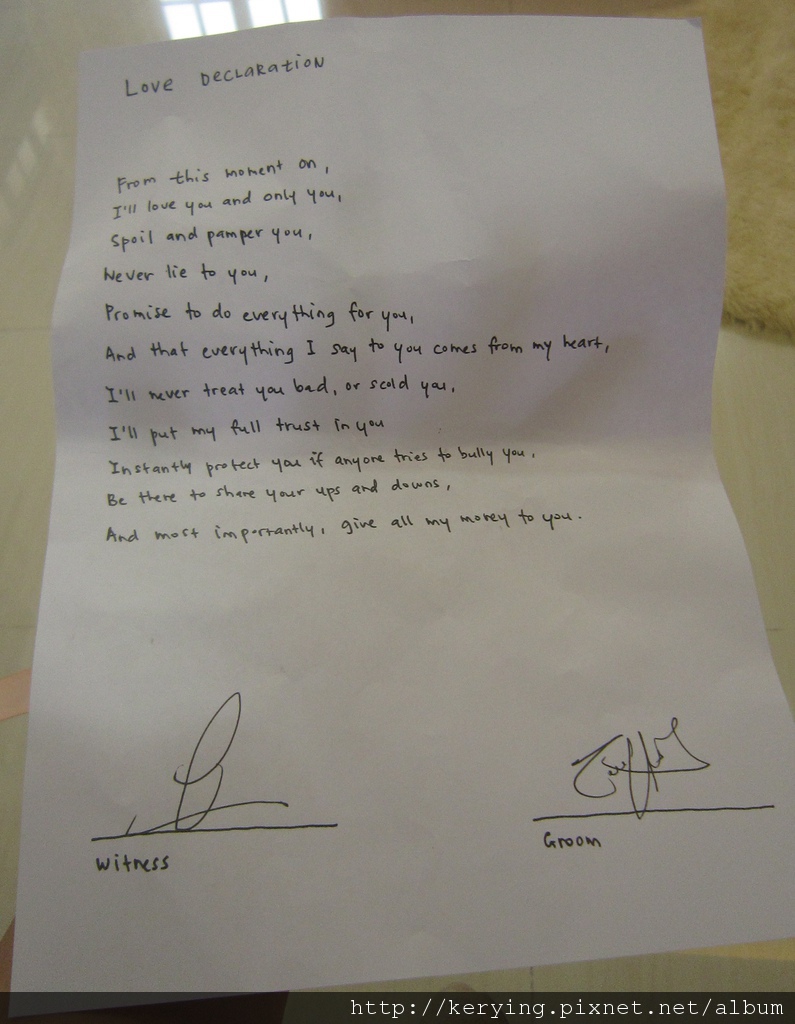 Love Declaration
From this moment on,
I'll love you and only you,
Spoil and pamper you,
Never lie to you,
Promise to do everything for you,
And that everything I say to you comes from my heart,
I'll never treat you bad, or scold you,
I'll put my full trust in you
Instantly protect you if anyone tries to bully you,
Be there to share your ups and downs,
And most importantly, give all my money to you.
Witness
Groom
http://kerying.pixnet.net/album